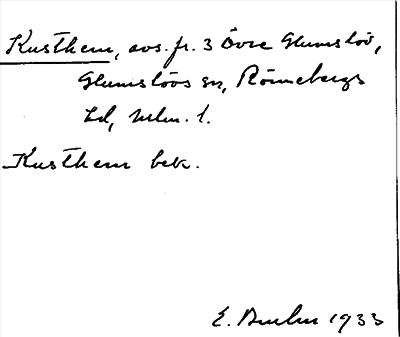 Kusthem, avs. fr. 3 Övre Glumslöv,
Glumslövs sn, Rönnebergs
hd, Mlm. l.
Kusthem bek.
E. 1933